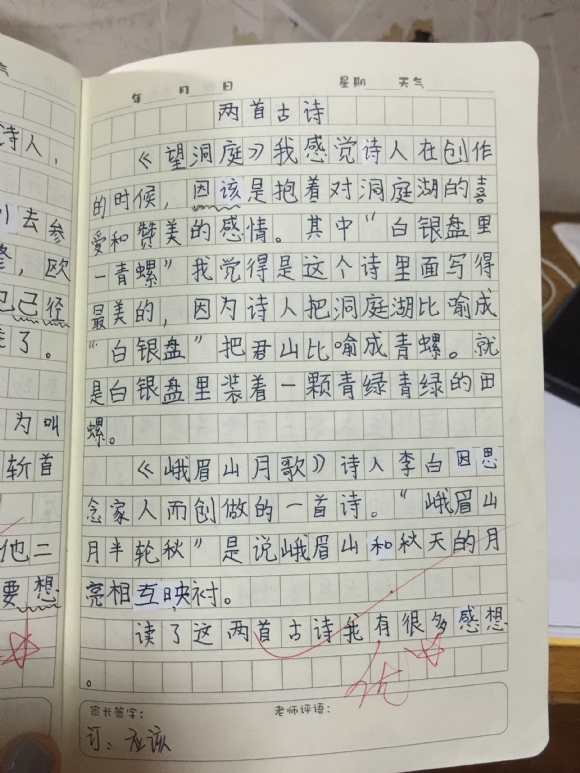 气
诗人，
去参
欧
己径
了。
为叫
斩首
他二
要想
年 月 日 星期 天气
两首古诗
《望洞庭》我感觉诗人在创作
的时候，因该是抱着对洞庭湖的喜
爱和赞美的感情。其中“白银盘里
一青螺”我觉得是这个诗里面写得
最美的，因为诗人把洞庭湖比喻成
“白银盘”把君山比喻成青螺。就
是白银盘里装着一颗青绿青绿的田
螺。
《峨眉山月歌》诗人李白因思
念家人而创做的一首诗。“峨眉山
月半轮秋”是说峨眉山和秋天的月
亮相互映衬。
读了这两首古诗我有很多感想
。
优
家长签字： 老师评语：
订：应该